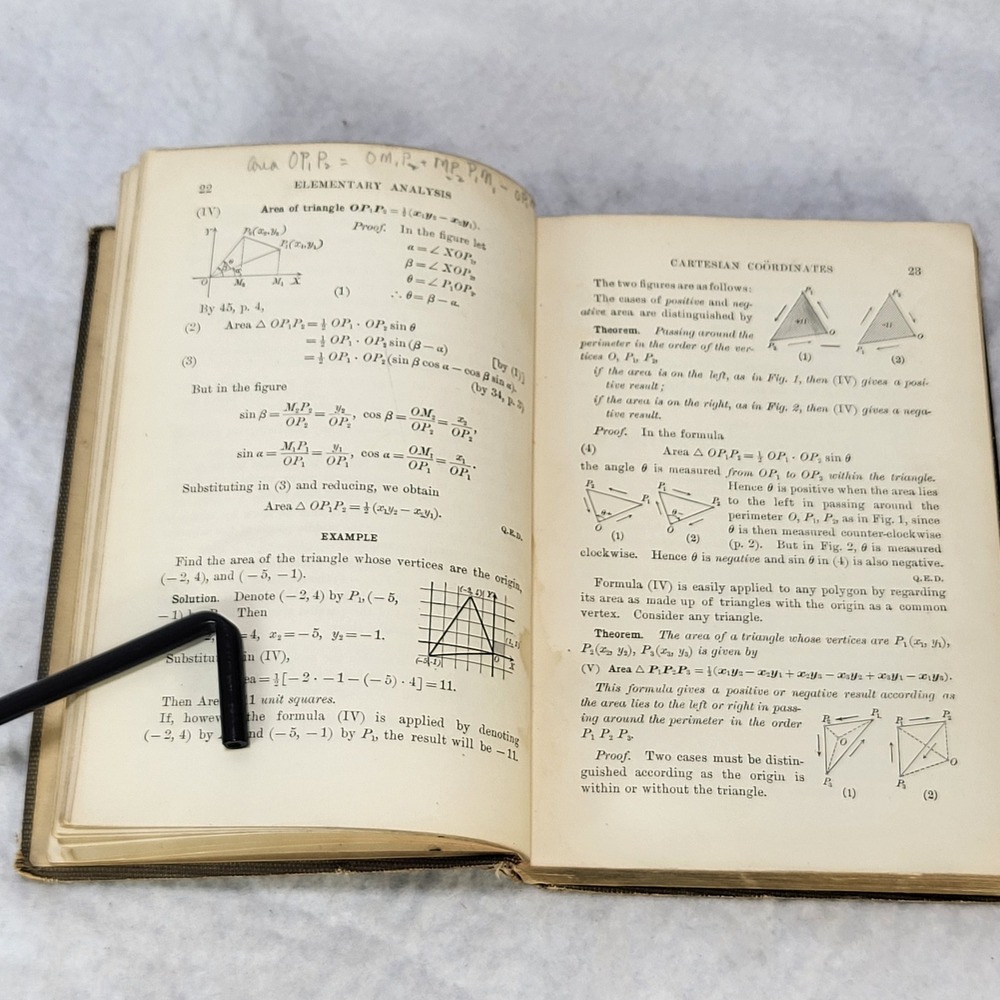 area OP₁P₂ = OM₁P₂ + M₂P₂P₁M₁ - OP
22 ELEMENTARY ANALYSIS
(IV) Area of triangle OP₁P₂ = ½(x₁y₂ − x₂y₁).
Y
P₂(x₂,y₂)
P₁(x₁,y₁)
θ
β
α
O M₂ M₁ X
Proof. In the figure let
α = ∠ XOP₁,
β = ∠ XOP₂,
θ = ∠ P₁OP₂.
(1) ∴ θ = β − α.
By 45, p. 4,
(2) Area △ OP₁P₂ = ½ OP₁ · OP₂ sin θ
= ½ OP₁ · OP₂ sin (β − α) [by (1)]
(3) = ½ OP₁ · OP₂ (sin β cos α − cos β sin α).
(by 34, p. 3)
But in the figure
sin β = M₂P₂/OP₂ = y₂/OP₂, cos β = OM₂/OP₂ = x₂/OP₂,
sin α = M₁P₁/OP₁ = y₁/OP₁, cos α = OM₁/OP₁ = x₁/OP₁.
Substituting in (3) and reducing, we obtain
Area △ OP₁P₂ = ½ (x₁y₂ − x₂y₁).
Q.E.D.
EXAMPLE
Find the area of the triangle whose vertices are the origin,
(−2, 4), and (−5, −1).
Solution. Denote (−2, 4) by P₁, (−5,
−1) Then
4, x₂ = −5, y₂ = −1.
in (IV),
= ½[−2 · −1 − (−5) · 4] = 11.
Then 1 unit squares.
If, the formula (IV) is applied by denoting
(−2, 4) by and (−5, −1) by P₁, the result will be −11.
Y
(-5,-1)
O
X
CARTESIAN COÖRDINATES 23
The two figures are as follows:
The cases of positive and neg-
ative area are distinguished by
Theorem. Passing around the
perimeter in the order of the ver-
tices O, P₁, P₂,
P₁
+11
P₂
O
(1)
P₂
-11
P₁
O
(2)
if the area is on the left, as in Fig. 1, then (IV) gives a posi-
tive result;
if the area is on the right, as in Fig. 2, then (IV) gives a nega-
tive result.
Proof. In the formula
(4) Area △ OP₁P₂ = ½ OP₁ · OP₂ sin θ
the angle θ is measured from OP₁ to OP₂ within the triangle.
P₂
P₁
θ
O
(1)
P₁
P₂
θ
O
(2)
Hence θ is positive when the area lies
to the left in passing around the
perimeter O, P₁, P₂, as in Fig. 1, since
θ is then measured counter-clockwise
(p. 2). But in Fig. 2, θ is measured
clockwise. Hence θ is negative and sin θ in (4) is also negative.
Q.E.D.
Formula (IV) is easily applied to any polygon by regarding
its area as made up of triangles with the origin as a common
vertex. Consider any triangle.
Theorem. The area of a triangle whose vertices are P₁(x₁, y₁),
P₂(x₂, y₂), P₃(x₃, y₃) is given by
(V) Area △ P₁P₂P₃ = ½(x₁y₂ − x₂y₁ + x₂y₃ − x₃y₂ + x₃y₁ − x₁y₃).
This formula gives a positive or negative result according as
the area lies to the left or right in pass-
ing around the perimeter in the order
P₁ P₂ P₃.
Proof. Two cases must be distin-
guished according as the origin is
within or without the triangle.
P₂
P₁
O
P₃
(1)
P₁
P₂
O
P₃
(2)